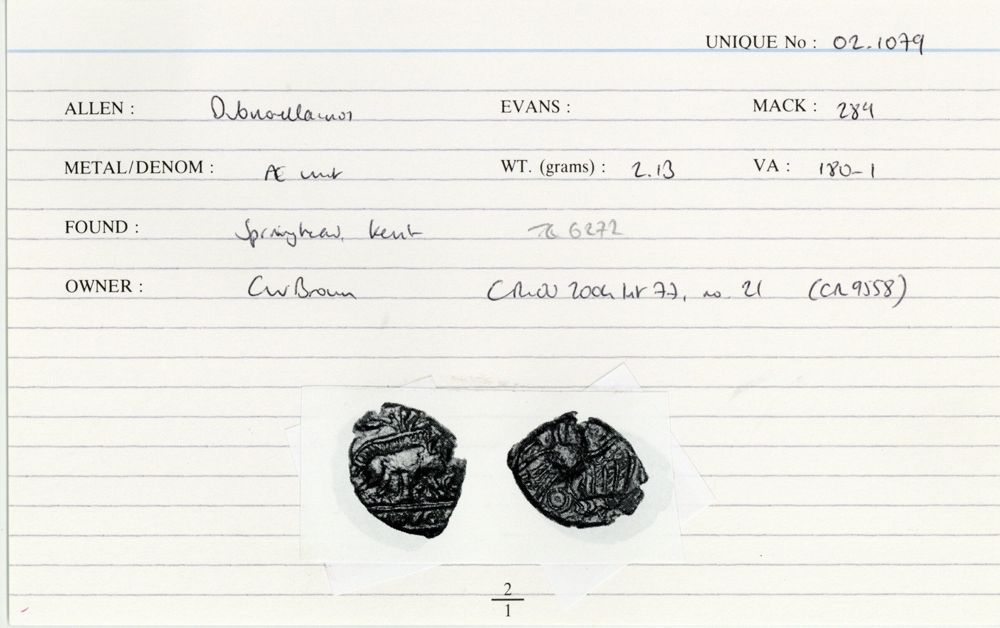 UNIQUE No : 02.1079
ALLEN : Dubnovellaunos EVANS : MACK : 284
METAL/DENOM : Æ unit WT. (grams) : 2.13 VA : 180-1
FOUND : Springhead, Kent TQ 6272
OWNER : CW Brown list 77, no. 21 (CR 9558)
2
1